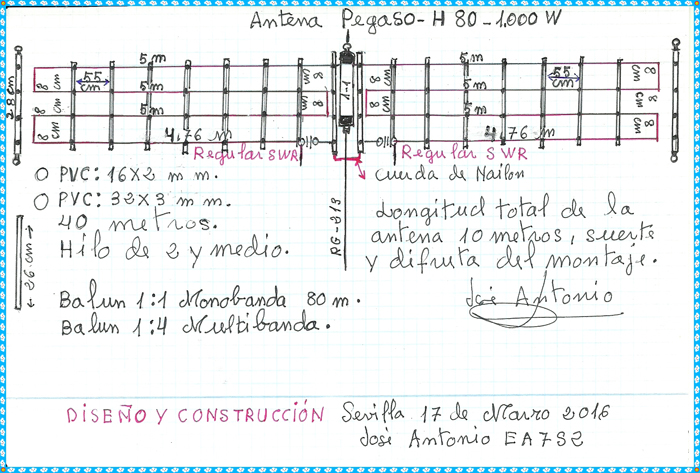 Antena Pegaso-H 80-1.000 W
5 m 5 m
55 cm 8 cm 8 cm 55 cm 8 cm
28 cm 8 cm 5 m 8 cm 1-1 8 cm 5 m 8 cm
8 cm 5 m 8 cm 8 cm 5 m 8 cm
4,76 m 4,76 m
Regular SWR Regular SWR
cuerda de Nailon
O PVC: 16X2 m m.
O PVC: 32X3 m m.
40 metros.
Hilo de 2 y medio.
26 cm
RG-213
Longitud total de la
antena 10 metros, suerte
y difruta del montaje.
José Antonio
Balun 1:1 Monobanda 80 m.
Balun 1:4 Multibanda.
DISEÑO Y CONSTRUCCIÓN Sevilla 17 de Marzo 2016
José Antonio EA7SZ